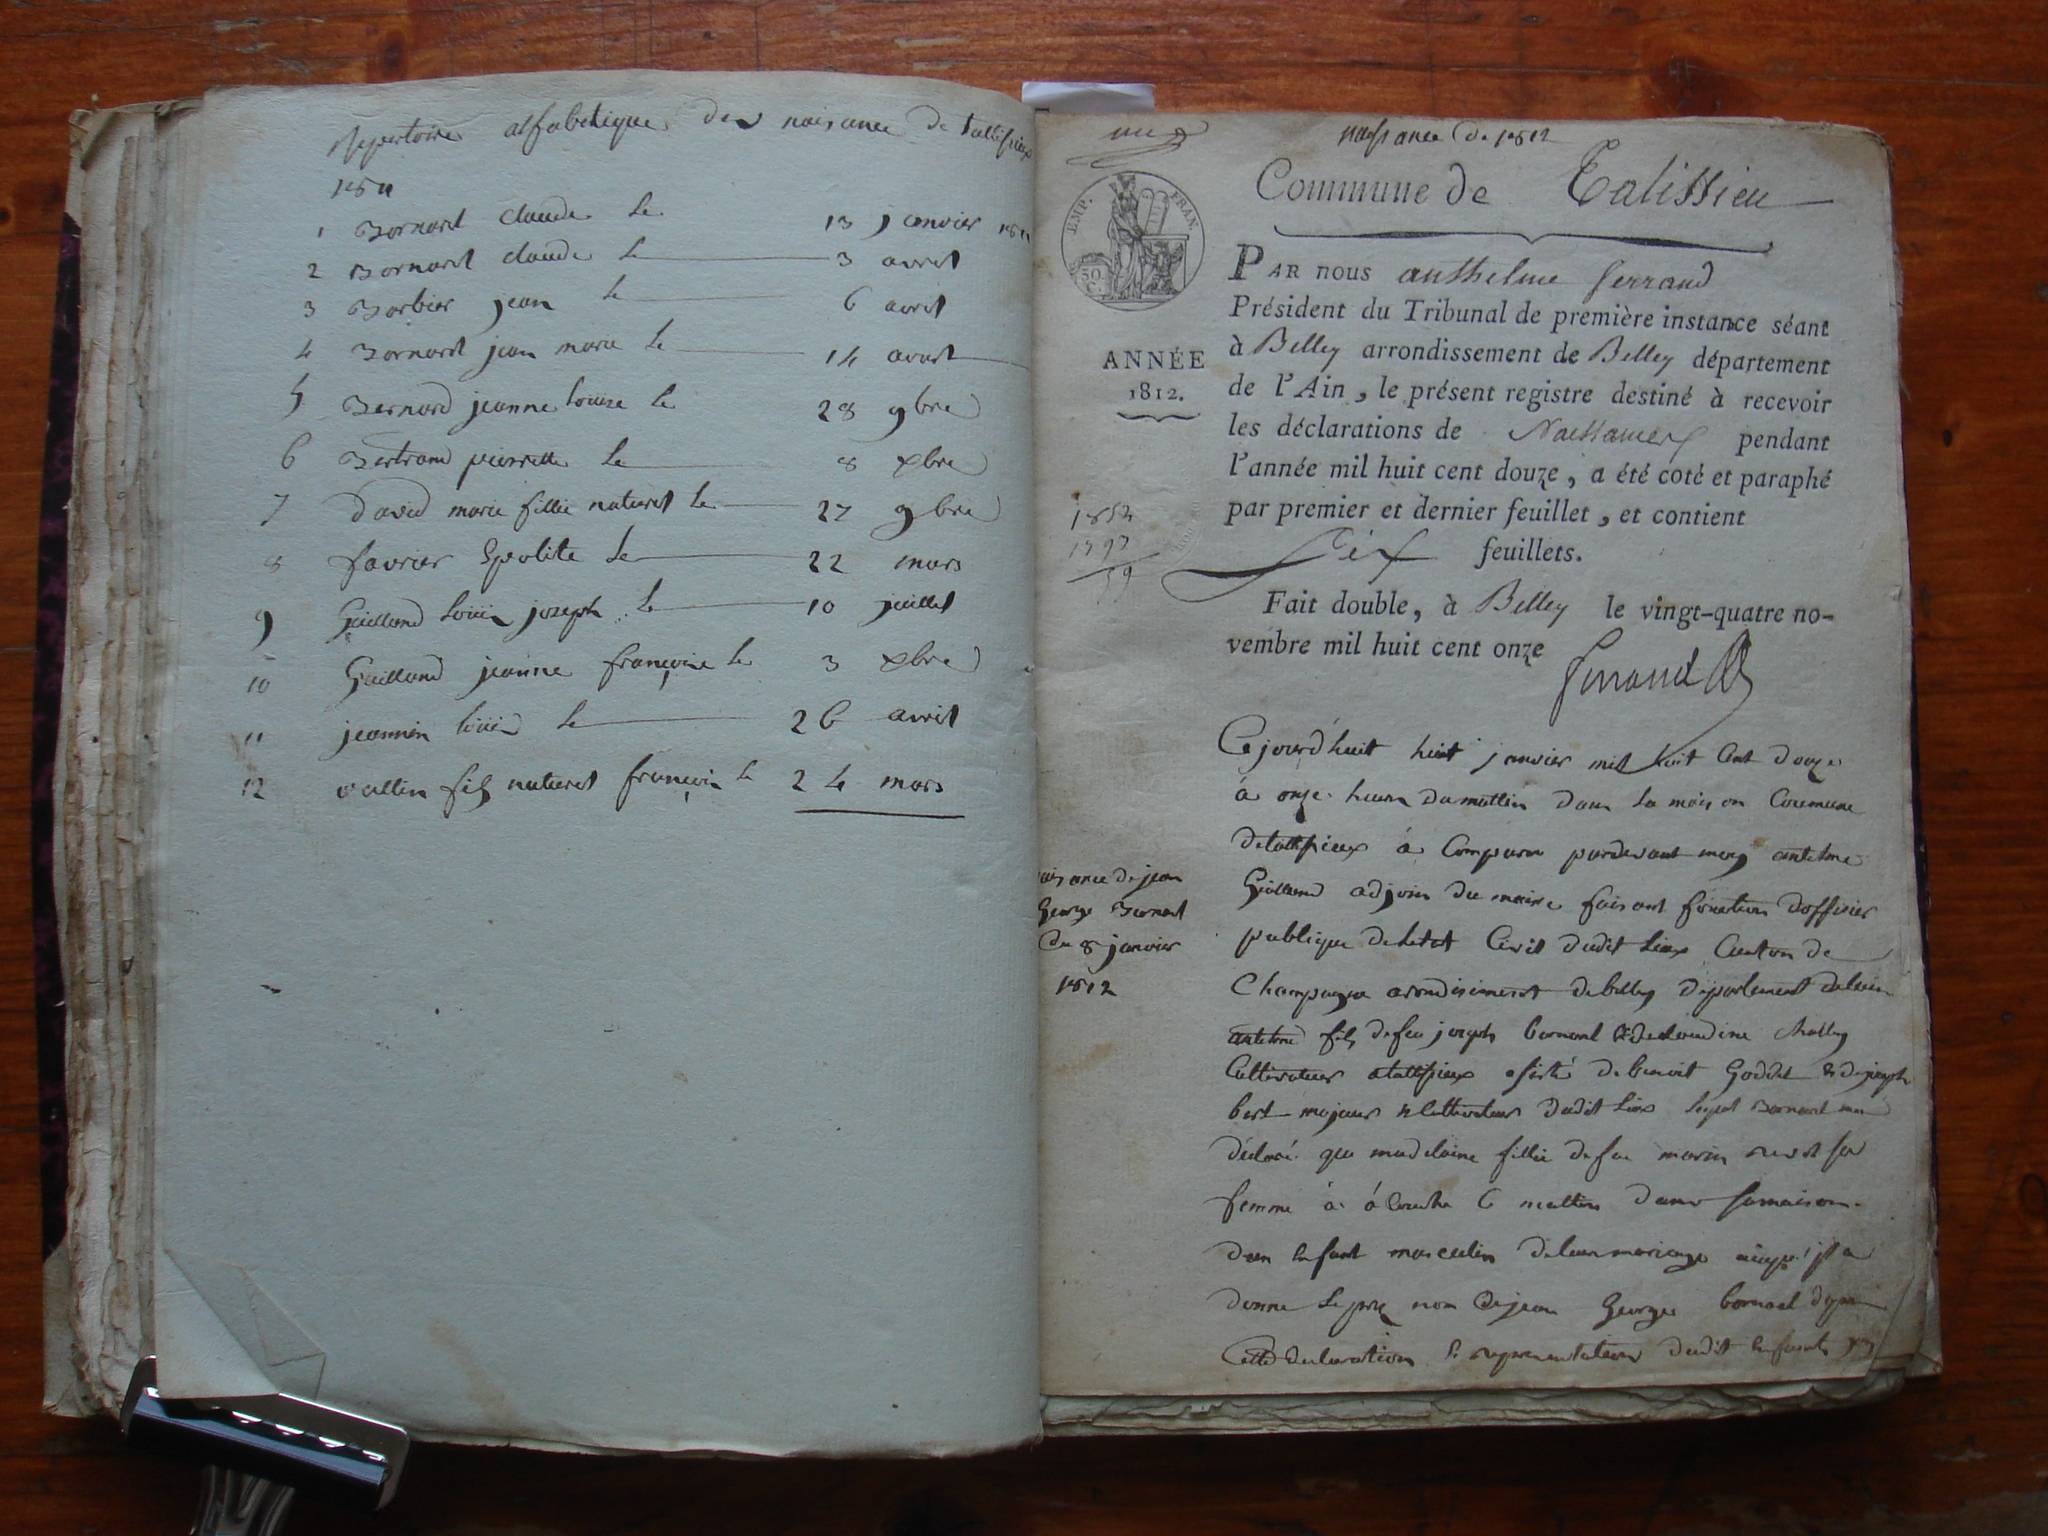 Repertoire alfabetique des naisance de tallissieux
1811
1 Bornard claude le 13 janvier 1811
2 Bornard claude le 3 avril
3 Borbier jean le 6 avril
4 Bornard jean marie le 14 avril
5 Bernard jeanne louise le 28 9bre
6 Bertrand pierrette le 8 xbre
7 David marie fillie naturel le 27 9bre
8 favrier Epolite le 22 mars
9 Guilland louis joseph le 10 juillet
10 Guilland jeanne françoise le 3 xbre
11 jeannin louis le 26 avril
12 vullin fils naturel françois le 24 mars
naissance de 1812
Commune de Talissieu
EMP. FRAN.
50 C.
ANNÉE
1812.
PAR nous anthelme ferrand
Président du Tribunal de première instance séant
à Belley arrondissement de Belley département
de l'Ain, le présent registre destiné à recevoir
les déclarations de Naissances pendant
l'année mil huit cent douze, a été coté et paraphé
par premier et dernier feuillet, et contient
Six feuillets.
Fait double, à Belley le vingt-quatre no-
vembre mil huit cent onze
ferrand
1852
1793
59
aisance de jean
George Bernard
du 8 janvier
1812
Cejourd'huit huit janvier mil huit Cent douze
à onze heure du mattin dans la maison Commune
de tallissieux à Comparu pardevant moy antelme
Guilland adjoin du maire faisant fonction d'officier
publique de letat Civil dudit lieux Canton de
Champagne arondisiment de belley département delain
antelme fils de feu joseph bernard & de claudine
Cultivateur a tallissieux asisté de benoit Goddet & de joseph
bert majeurs & Cultivateur dudit lieux lequel Bornard ma
déclaré que madelaine fillie de feu marin sa
femme à acouché 6 mattin dans sa maison
dun Enfant masculin de leur mariage auquel il a
donne le pré nom de jean George bornard dapré
Cette declaration & representation dudit Enfant